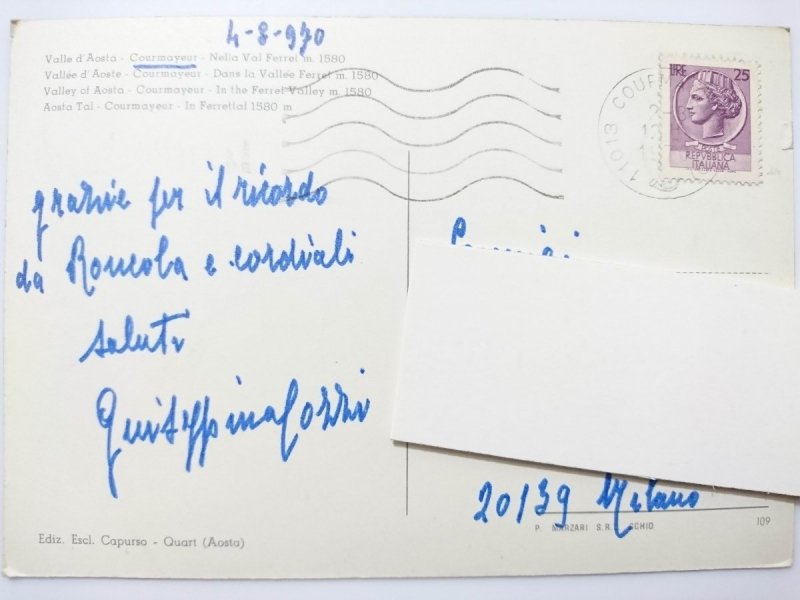 4-8-970
Valle d'Aosta - Courmayeur - Nella Val Ferret m. 1580
Vallée d'Aoste - Courmayeur - Dans la Vallée Ferret m. 1580
Valley of Aosta - Courmayeur - In the Ferret Valley m. 1580
Aosta Tal - Courmayeur - In Ferrettal 1580 m
LIRE 25
POSTE
REPVBBLICA
ITALIANA
11013 COURM
grazie per il ricordo
da Roncola e cordiali
saluti
Giuseppina Cozzi
20139 Milano
P. MARZARI S.R. SCHIO
109
Ediz. Escl. Capurso - Quart (Aosta)